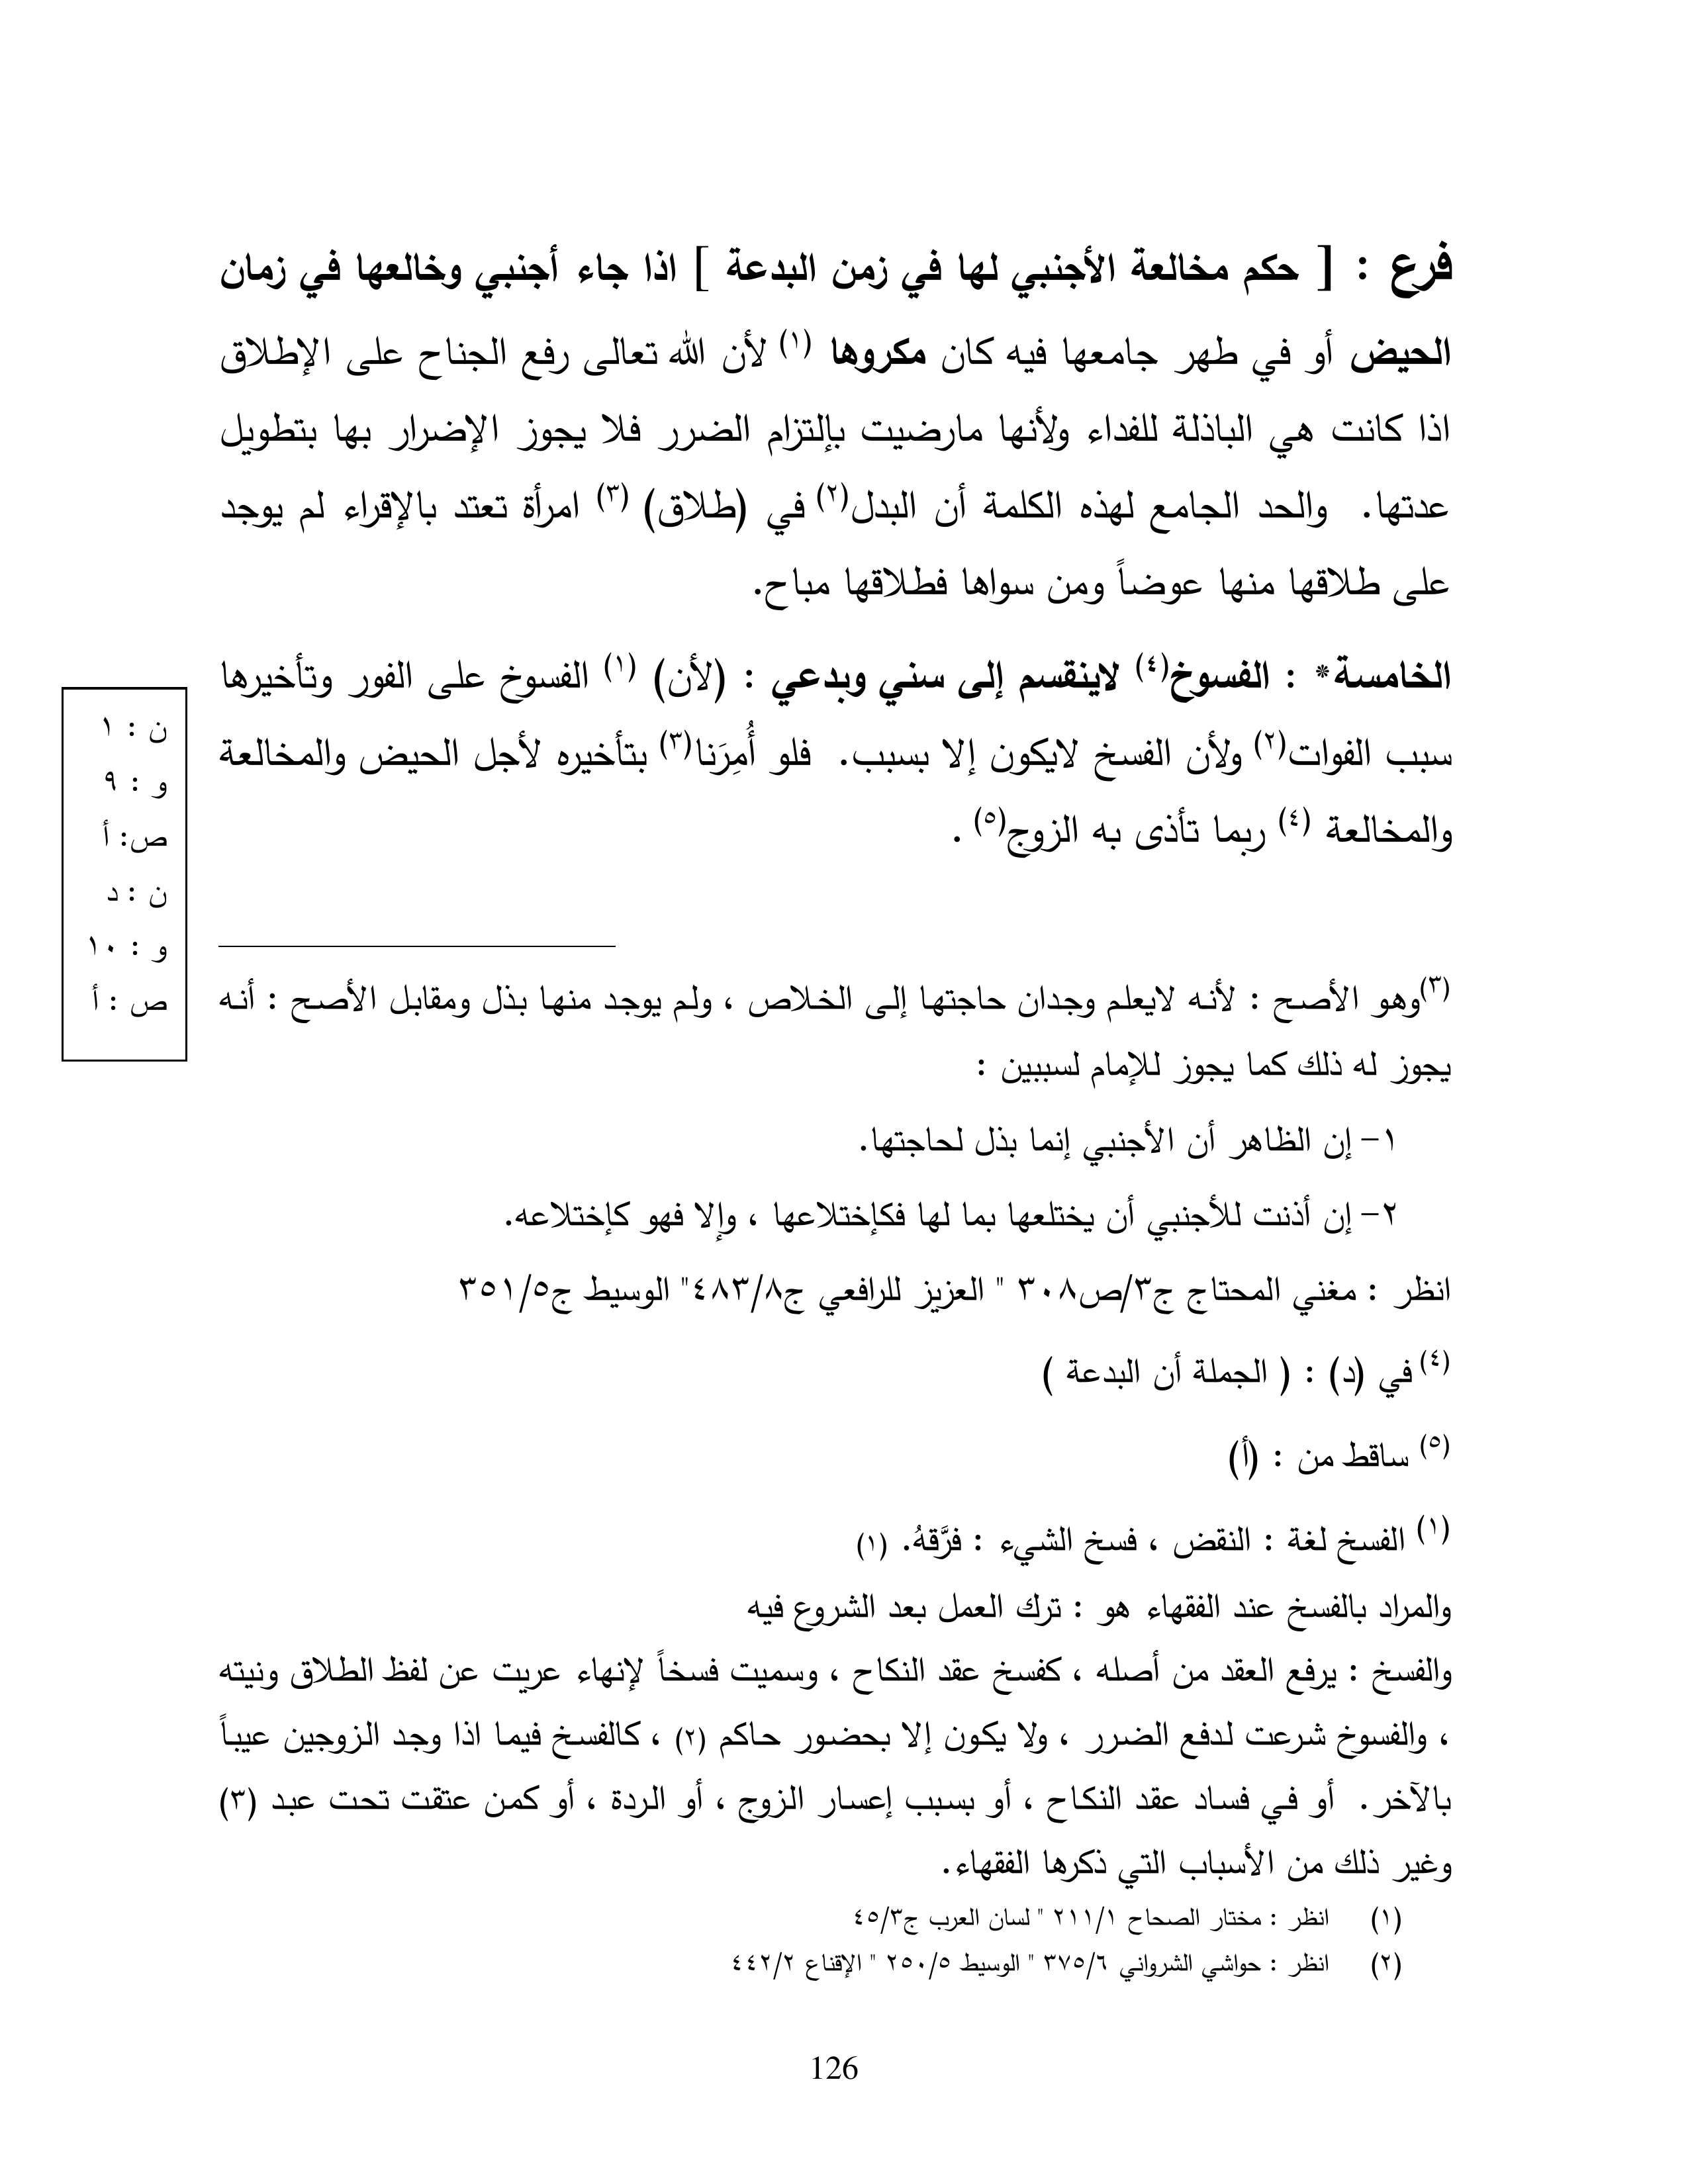 فرع : [ حكم مخالعة الأجنبي لها في زمن البدعة ] اذا جاء أجنبي وخالعها في زمان
الحيض أو في طهر جامعها فيه كان مكروها (١) لأن الله تعالى رفع الجناح على الإطلاق
اذا كانت هي الباذلة للفداء ولأنها مارضيت بإلتزام الضرر فلا يجوز الإضرار بها بتطويل
عدتها. والحد الجامع لهذه الكلمة أن البدل(٢) في (طلاق) (٣) امرأة تعتد بالإقراء لم يوجد
على طلاقها منها عوضاً ومن سواها فطلاقها مباح.
الخامسة* : الفسوخ(٤) لاينقسم إلى سني وبدعي : (لأن) (١) الفسوخ على الفور وتأخيرها
سبب الفوات(٢) ولأن الفسخ لايكون إلا بسبب. فلو أُمِرَنا(٣) بتأخيره لأجل الحيض والمخالعة
والمخالعة (٤) ربما تأذى به الزوج(٥) .
ن : ١
و : ٩
ص: أ
ن : د
و : ١٠
ص : أ
(٣)وهو الأصح : لأنه لايعلم وجدان حاجتها إلى الخلاص ، ولم يوجد منها بذل ومقابل الأصح : أنه
يجوز له ذلك كما يجوز للإمام لسببين :
١- إن الظاهر أن الأجنبي إنما بذل لحاجتها.
٢- إن أذنت للأجنبي أن يختلعها بما لها فكإختلاعها ، وإلا فهو كإختلاعه.
انظر : مغني المحتاج ج٣/ص٣٠٨ " العزيز للرافعي ج٤٨٣/٨" الوسيط ج٣٥١/٥
(٤) في (د) : ( الجملة أن البدعة )
(٥) ساقط من : (أ)
(١) الفسخ لغة : النقض ، فسخ الشيء : فرَّقهُ. (١)
والمراد بالفسخ عند الفقهاء هو : ترك العمل بعد الشروع فيه
والفسخ : يرفع العقد من أصله ، كفسخ عقد النكاح ، وسميت فسخاً لإنهاء عريت عن لفظ الطلاق ونيته
، والفسوخ شرعت لدفع الضرر ، ولا يكون إلا بحضور حاكم (٢) ، كالفسخ فيما اذا وجد الزوجين عيباً
بالآخر. أو في فساد عقد النكاح ، أو بسبب إعسار الزوج ، أو الردة ، أو كمن عتقت تحت عبد (٣)
وغير ذلك من الأسباب التي ذكرها الفقهاء.
(١) انظر : مختار الصحاح ٢١١/١ " لسان العرب ج٤٥/٣
(٢) انظر : حواشي الشرواني ٣٧٥/٦ " الوسيط ٢٥٠/٥ " الإقناع ٤٤٢/٢
126